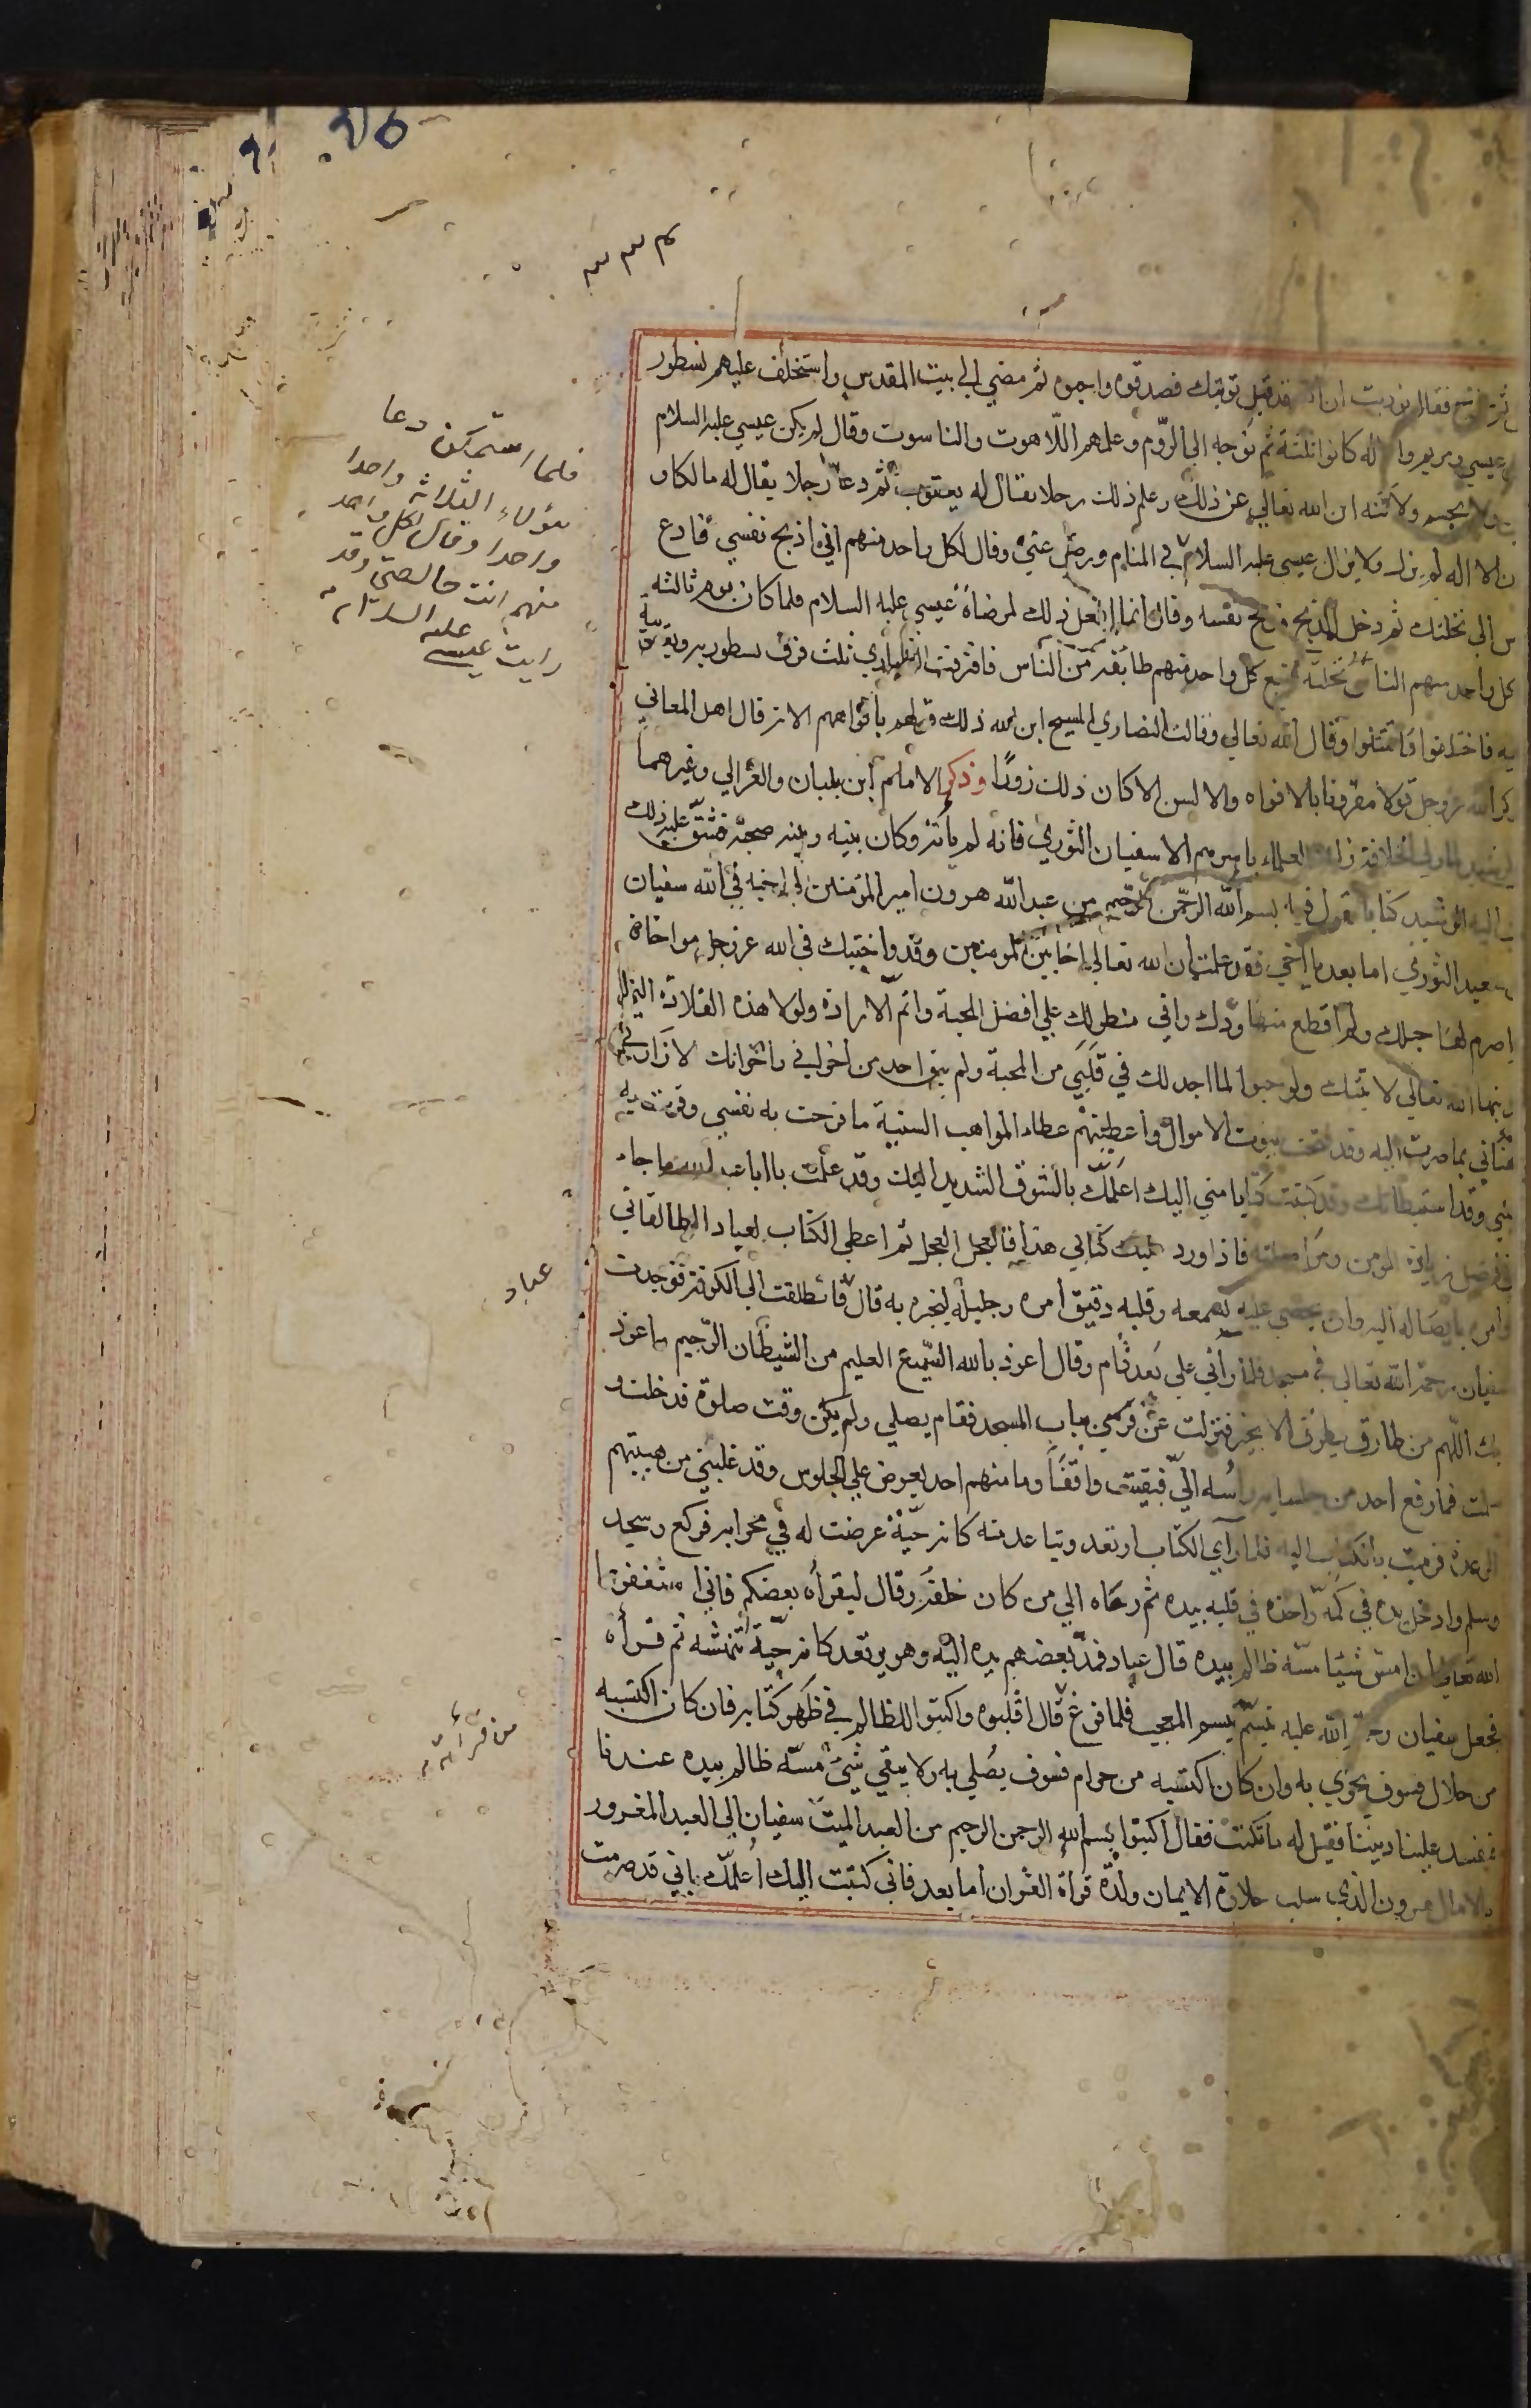 فقال نوديت ان الله قد قبل توبتك فصدقوه واحبوه ثم مضي الي بيت المقدس واستخلف عليهم نسطور
عيسي ومريم واله كانوا ثلثة ثم توجه الي الروم وعلمهم اللاهوت والناسوت وقال لم يكن عيسي عليه السلام
ولا بجسم ولاكنه ابن الله تعالي عن ذلك وعلم ذلك رجلا يقال له يعقوب ثم دعا رجلا يقال له ملكان
ان الاله لم يزل ولا يزال عيسي عليه السلام في المنام ورضي عني وقال لكل واحد منهم اني اذبح نفسي فادع
س الي نحلتك ثم دخل المذبح فذبح نفسه وقال انما افعل ذلك لمرضاة عيسي عليه السلام فلما كان يوم ثالثه
كل واحد منهم الناس نحلته فتبع كل واحد منهم طائفة من الناس فافترقت النصاري ثلث فرق نسطورية ويعقوبية
يه فاختلفوا فاقتتلوا وقال الله تعالي وقالت النصاري المسيح ابن الله ذلك قولهم بافواههم الاية قال اهل المعاني
كر الله عز وجل قولا مقرونا بالافواه والالسن الا كان ذلك زورا وذكر الامام ابن بلبان والغزالي وغيرهما
الرشيد لما ولي الخلافة زاره العلماء باسرهم الا سفيان الثوري فانه لم يأته وكان بينه وبينه صحبة فشق عليه ذلك
ب اليه الرشيد كتابا يقول فيه بسم الله الرحمن الرحيم من عبد الله هرون امير المؤمنين الي اخيه في الله سفيان
سعيد الثوري اما بعد يا اخي فقد علمت ان الله تعالي اخا بين المومنين وقد واخيتك في الله عز وجل مواخاة
اصرم لها حبلك ولم اقطع منها ودك واني منطو لك علي افضل المحبة واتم الارادة ولولا هذه القلادة التي
نيها الله تعالي لاتيتك ولو حبوا لما اجد لك في قلبي من المحبة ولم يبق احد من اخواني واخوانك الا زارني
هنأني بما صرت اليه وقد فتحت بيوت الاموال واعطيتهم عطاء المواهب السنية ما فرحت به نفسي وقرت به
عيني وقد استبطاتك وقد كتبت كتابا مني اليك اعلمك بالشوق الشديد اليك وقد علمت يا ابا عبد الله ما جاء
في فضل زيارة المومن ومواصلته فاذا ورد عليك كتابي هذا فالعجل العجل ثم اعطي الكتاب لعباد الطالقاني
وامره بايصاله اليه وان يحصي عليه بسمعه وقلبه دقيق امره وجليله ليخبره به قال فانطلقت الي الكوفة فوجدت
سفيان رحمه الله تعالي في مسجده فلما رآني علي بعد قام وقال اعوذ بالله السميع العليم من الشيطان الرجيم واعوذ
بك اللهم من طارق يطرق الا بخير فنزلت عن فرسي بباب المسجد فقام يصلي ولم يكن وقت صلوة فدخلت و
سلمت فما رفع احد من جلسايه رأسه الي فبقيت واقفا وما منهم احد يعرض علي الجلوس وقد غلبني من هيبتهم
الرعدة فرميت بالكتاب اليه فلما رآي الكتاب ارتعد وتباعد منه كانه حية عرضت له في محرابه فركع وسجد
وسلم وادخل يده في كمه واخذه في قلبه بيده ثم رماه الي من كان خلفه وقال ليقرأه بعضكم فاني استغفر
الله تعالي ان امس شيئا مسه ظالم بيده قال عباد فمد بعضهم يده اليه وهو يرتعد كانه حية تنهشه ثم قرأه
فجعل سفيان رحمة الله عليه يتبسم تبسم المعجب فلما فرغ قال اقلبوه واكتبوا للظالم في ظهر كتابه فان كان اكتسبه
من حلال فسوف يجزي به وان كان اكتسبه من حرام فسوف يصلي به ولا يبقي شئ مسه ظالم بيده عندنا
فيفسد علينا ديننا فقيل له ما تكتب فقال اكتبوا بسم الله الرحمن الرحيم من العبد الميت سفيان الي العبد المغرور
بالامال هرون الذي سلب حلاوة الايمان ولذة قرأة القران اما بعد فاني كتبت اليك اعلمك اني قد صرمت
فلما استمكن دعا
هؤلاء الثلاثة واحدا
واحدا وقال لكل واحد
منهم انت خالصتي وقد
رايت عيسي عليه السلام
عباد
من قرأته